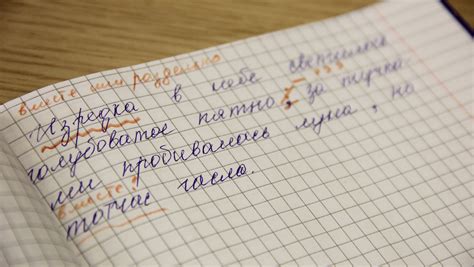 вместе или раздельно
Изредка в небе светилось
голубоватое пятно, за тучка-
ми пробивалась луна, но
вместе!
тотчас гасла.